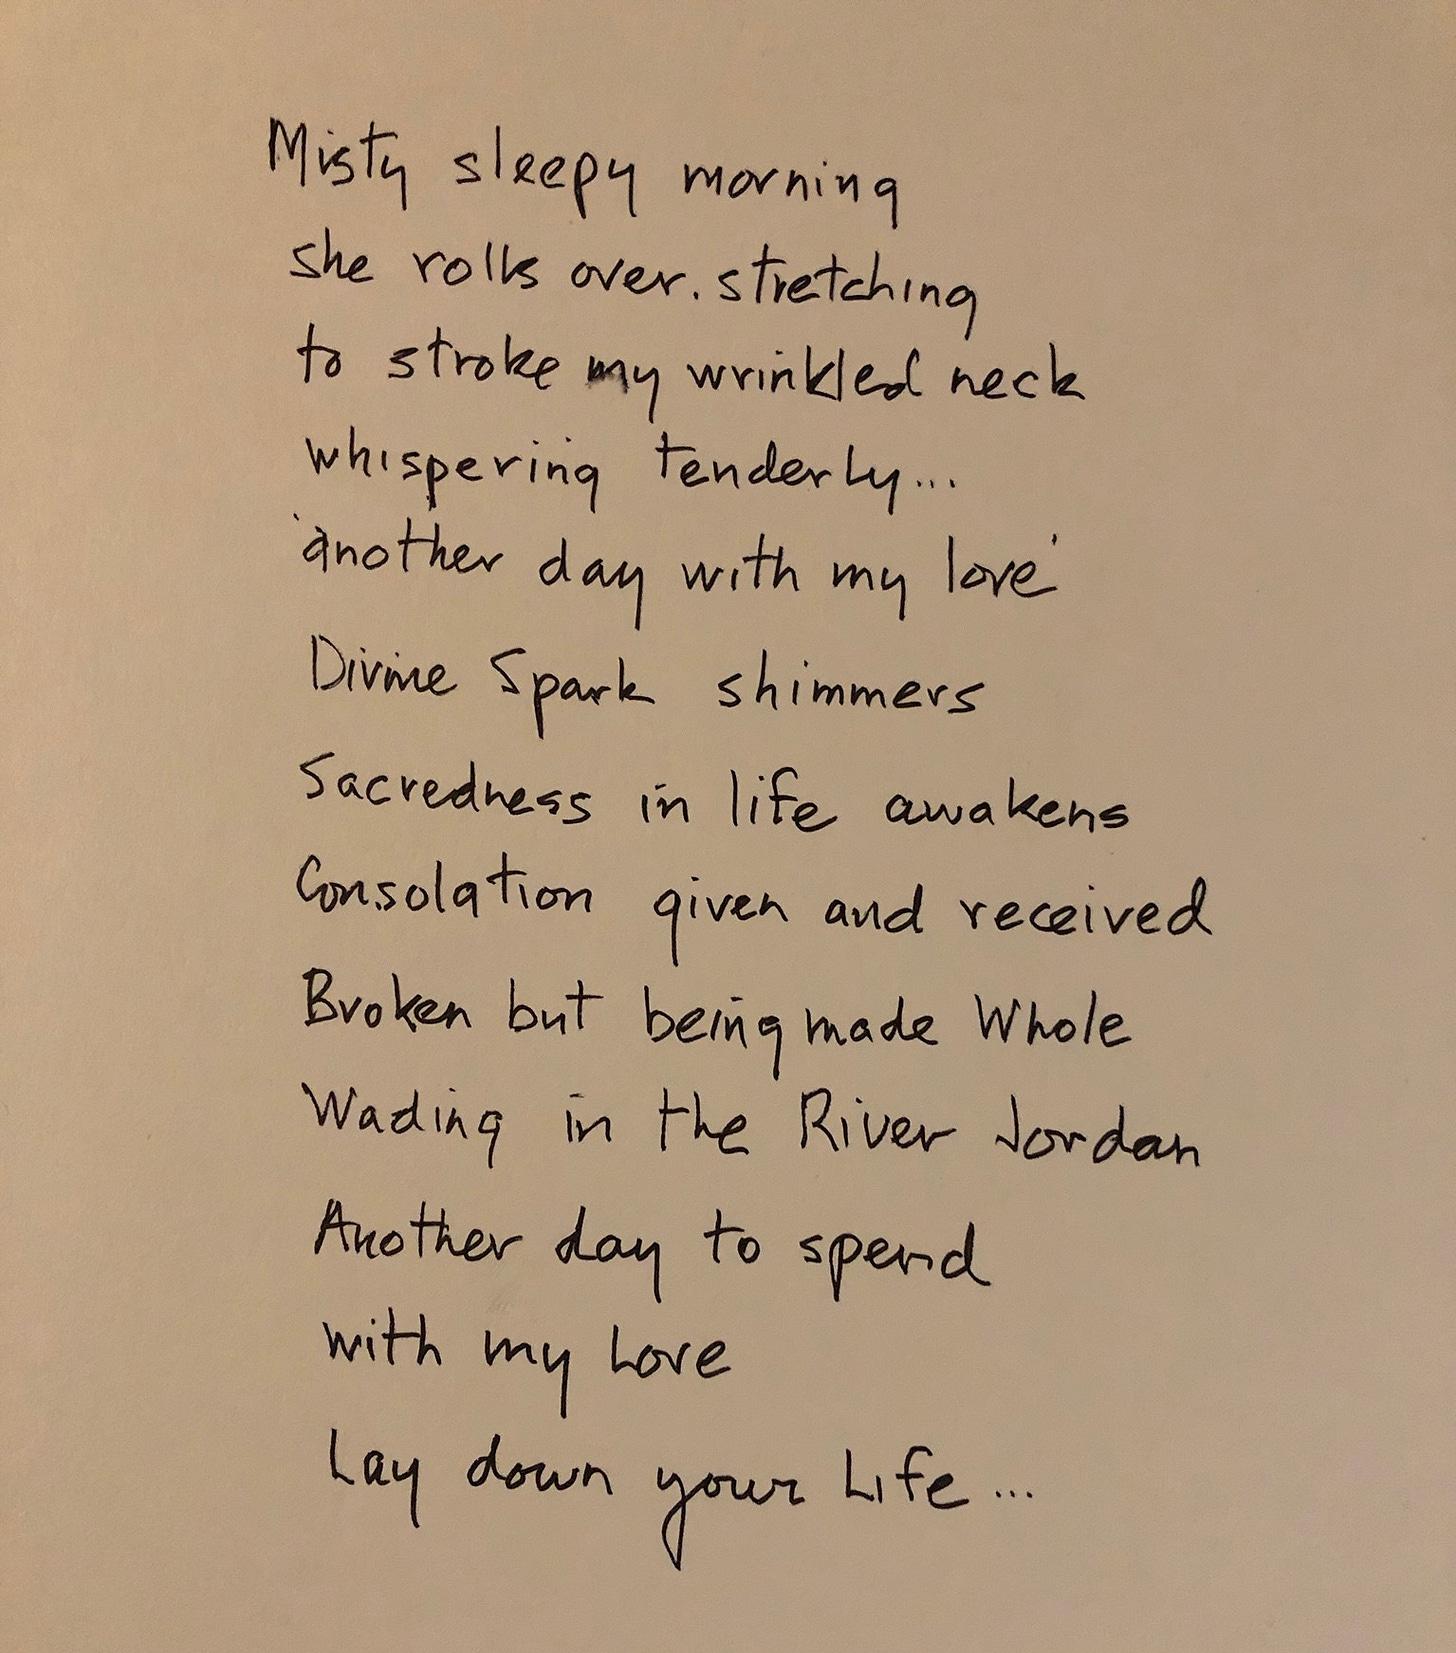 Misty sleepy morning
she rolls over. stretching
to stroke my wrinkled neck
whispering tenderly...
'another day with my love'
Divine Spark shimmers
Sacredness in life awakens
Consolation given and received
Broken but being made Whole
Wading in the River Jordan
Another day to spend
with my Love
Lay down your Life...